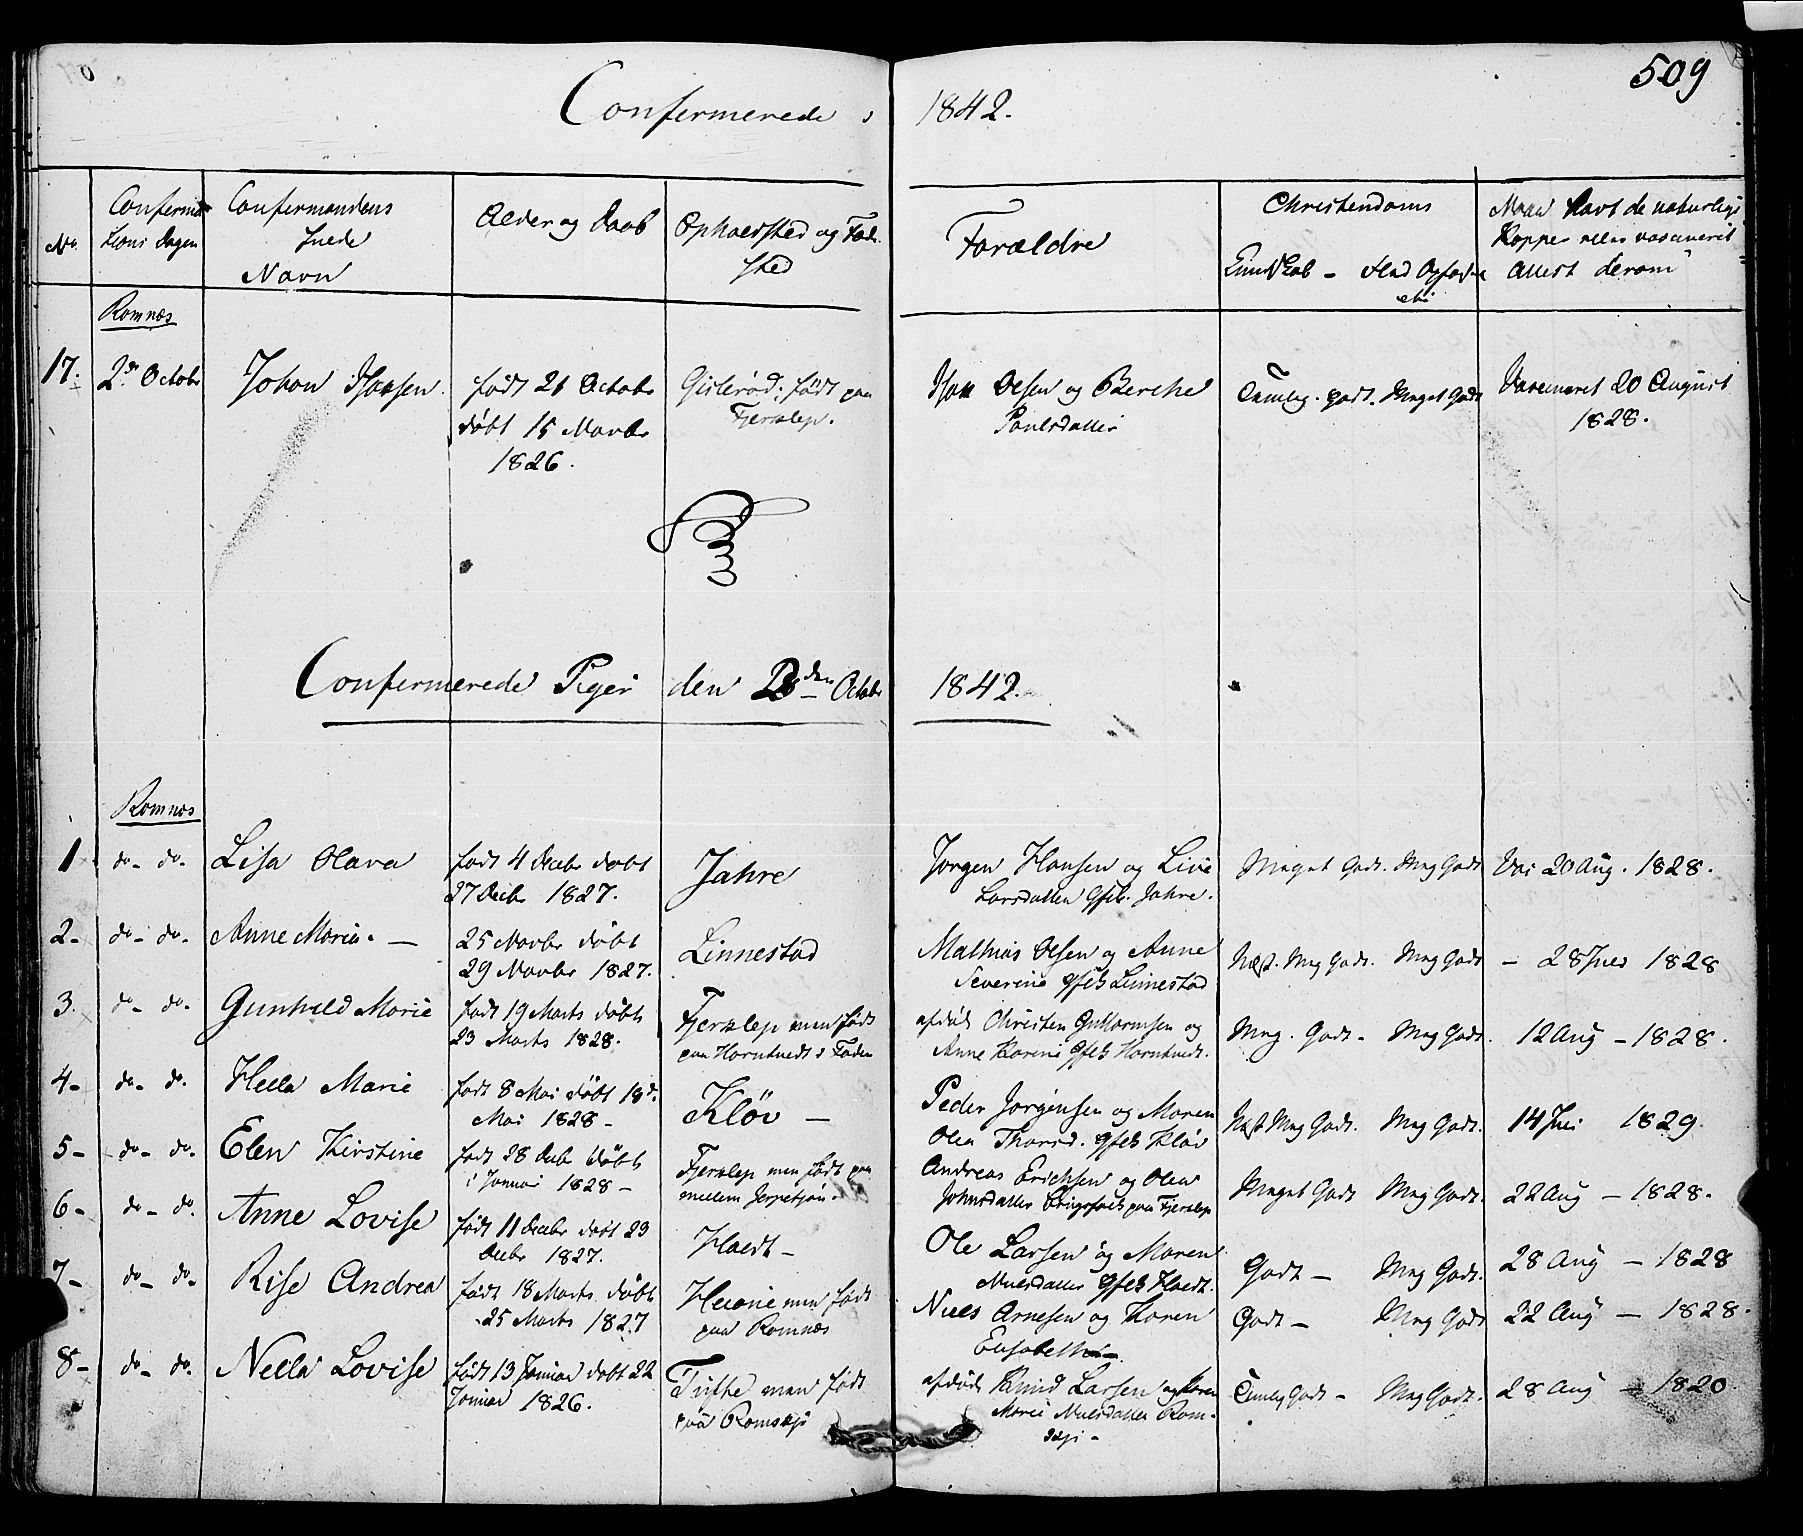 509
Confermerede 1842.
No.
Confermations Dagen
Confermandens Navn
Alder og Daab
Opholdsted og Fødested
Forældre
Christendoms Kundskab - Flid Opførsel
Naar havt de naturlige Kopper eller vaccineret Attest derom
Romnes
17. 2den October
Johan Isaksen
født 21 October
døbt 15 Novbr
1826.
Gislerød; født paa
Fjerslep.
Isak Olsen og Berthe
Poulsdatter
Temlig godt. Meget Godt
Vaccineret 20 August
1828.
Confermerede Piger den 2den Octobr 1842.
Romnes
1 do - do -
Lisa Olava
født 4 Decbr døbt
27 Decbr 1827.
Jahre
Jørgen Hansen og Live
Larsdatter Gift. Jahre.
Meget Godt. Meg Godt
Vac 20 Aug. 1828.
2 - do - do -
Anne Maria. -
25 Novbr døbt
29 Novbr 1827.
Linnestad
Mathias Olsen og Anne
Severine Gftf Linnestad
Næst. Meg Godt. Meg Godt
- 28 1828
3. do - do -
Gunhild Marie
født 19 Marts døbt
23 Marts 1828.
Fjerslep men født
paa Horntvedt
afdøde Christen Guttormsen og
Anne Karine Gftf Horntvedt.
Meg. Godt - Meg Godt.
12 Aug - 1828.
4 - do - do.
Hella Marie
født 8 Mai døbt 18d.
Mai 1828 -
Kløv -
Peder Jørgensen og Maren
Olea Thorsd. Gftf Kløv
Næst Meg Godt. Meg Godt.
14 1829.
5 - do - do.
Elen Kirstine
født 28 Decbr døbt
i Januar 1828 -
Fjerslep men født paa
mellem
Andreas Erichsen og Olea
Johnsdatter paa Fjerslep
Meget Godt Meg Godt.
22 Aug - 1828.
6 - do - do.
Anne Lovise
født 11 Decbr døbt 23
Decbr 1827.
Holdt -
Ole Larsen og Maren
Nielsdatter Gftf Holdt.
Godt - Meg Godt.
28 Aug - 1828
7 - do - do -
Rise Andrea
født 18 Marts døbt
25 Marts 1827
men født
paa Romnes
Niels Arnesen og Karen
Elisabeth -
Godt - Meg Godt
22 Aug - 1828.
8 - do - do.
Nella Lovise
født 13 Januar døbt 22
Januar 1826.
Tufte men født
paa Romseje
afdøde Knud Larsen og Karen
Marie Nielsdatter Rom-
seje -
Temlig Godt - Meg Godt.
28 Aug - 1820